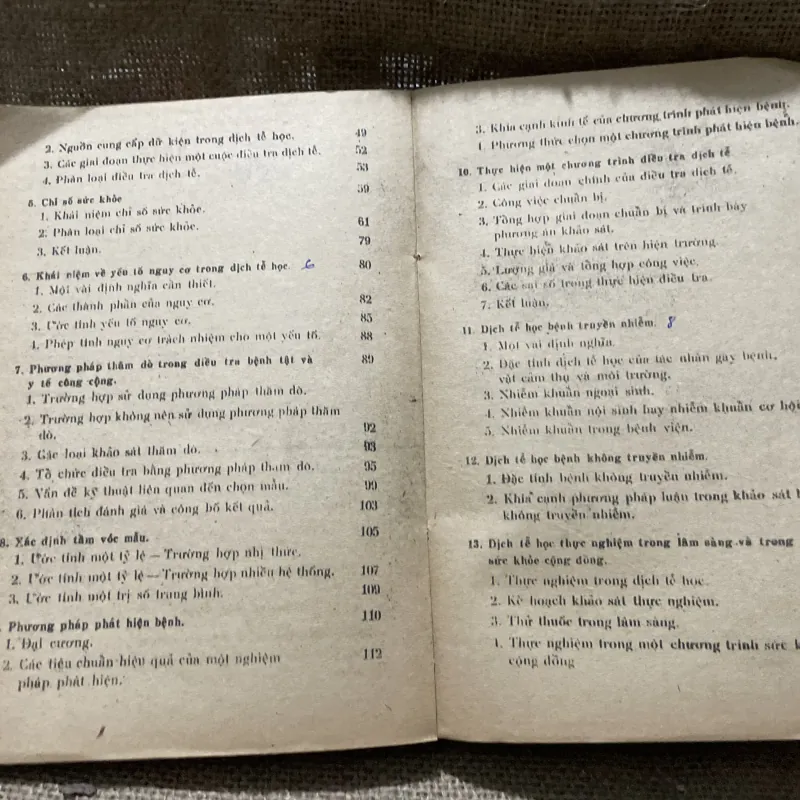 2. Nguồn cung cấp dữ kiện trong dịch tễ học. 49
3. Các giai đoạn thực hiện một cuộc điều tra dịch tễ. 52
4. Phân loại điều tra dịch tễ. 53
5. Chỉ số sức khỏe 59
1. Khái niệm chỉ số sức khỏe.
2. Phân loại chỉ số sức khỏe. 61
3. Kết luận. 79
6. Khái niệm về yếu tố nguy cơ trong dịch tễ học. 6 80
1. Một vài định nghĩa cần thiết.
2. Các thành phần của nguy cơ. 82
3. Ước tính yếu tố nguy cơ. 85
4. Phép tính nguy cơ trách nhiệm cho một yếu tố. 88
7. Phương pháp thăm dò trong điều tra bệnh tật và 89
y tế công cộng.
1. Trường hợp sử dụng phương pháp thăm dò.
2. Trường hợp không nên sử dụng phương pháp thăm
dò. 92
3. Các loại khảo sát thăm dò. 93
4. Tổ chức điều tra bằng phương pháp thăm dò. 95
5. Vấn đề kỹ thuật liên quan đến chọn mẫu. 99
6. Phân tích đánh giá và công bố kết quả. 103
8. Xác định tầm vóc mẫu. 105
1. Ước tính một tỷ lệ — Trường hợp nhị thức.
2. Ước tính một tỷ lệ — Trường hợp nhiều hệ thống. 107
3. Ước tính một trị số trung bình. 109
Phương pháp phát hiện bệnh. 110
1. Đại cương.
2. Các tiêu chuẩn hiệu quả của một nghiệm 112
pháp phát hiện.
3. Khía cạnh kinh tế của chương trình phát hiện bệnh.
4. Phương thức chọn một chương trình phát hiện bệnh.
10. Thực hiện một chương trình điều tra dịch tễ
1. Các giai đoạn chính của điều tra dịch tễ.
2. Công việc chuẩn bị.
3. Tổng hợp giai đoạn chuẩn bị và trình bày
phương án khảo sát.
4. Thực hiện khảo sát trên hiện trường.
5. Lượng giá và tổng hợp công việc.
6. Các sai số trong thực hiện điều tra.
7. Kết luận.
11. Dịch tễ học bệnh truyền nhiễm. 8
1. Một vài định nghĩa.
2. Đặc tính dịch tễ học của tác nhân gây bệnh,
vật cảm thụ và môi trường.
3. Nhiễm khuẩn ngoại sinh.
4. Nhiễm khuẩn nội sinh hay nhiễm khuẩn cơ hội
5. Nhiễm khuẩn trong bệnh viện.
12. Dịch tễ học bệnh không truyền nhiễm.
1. Đặc tính bệnh không truyền nhiễm.
2. Khía cạnh phương pháp luận trong khảo sát
không truyền nhiễm.
13. Dịch tễ học thực nghiệm trong lâm sàng và trong
sức khỏe cộng đồng.
1. Thực nghiệm trong dịch tễ học.
2. Kế hoạch khảo sát thực nghiệm.
3. Thử thuốc trong lâm sàng.
4. Thực nghiệm trong một chương trình sức
cộng đồng